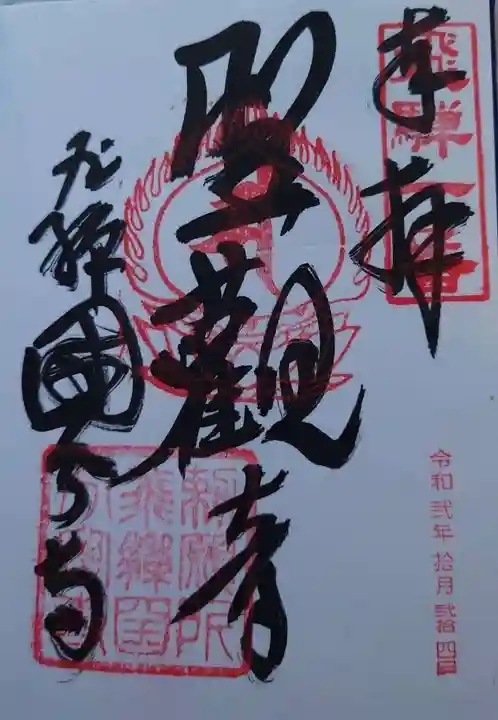 奉拝
飛騨一番
聖觀音
飛騨國分寺
勅願所
飛騨国
分寺
令和弐年 拾月 弐拾四日